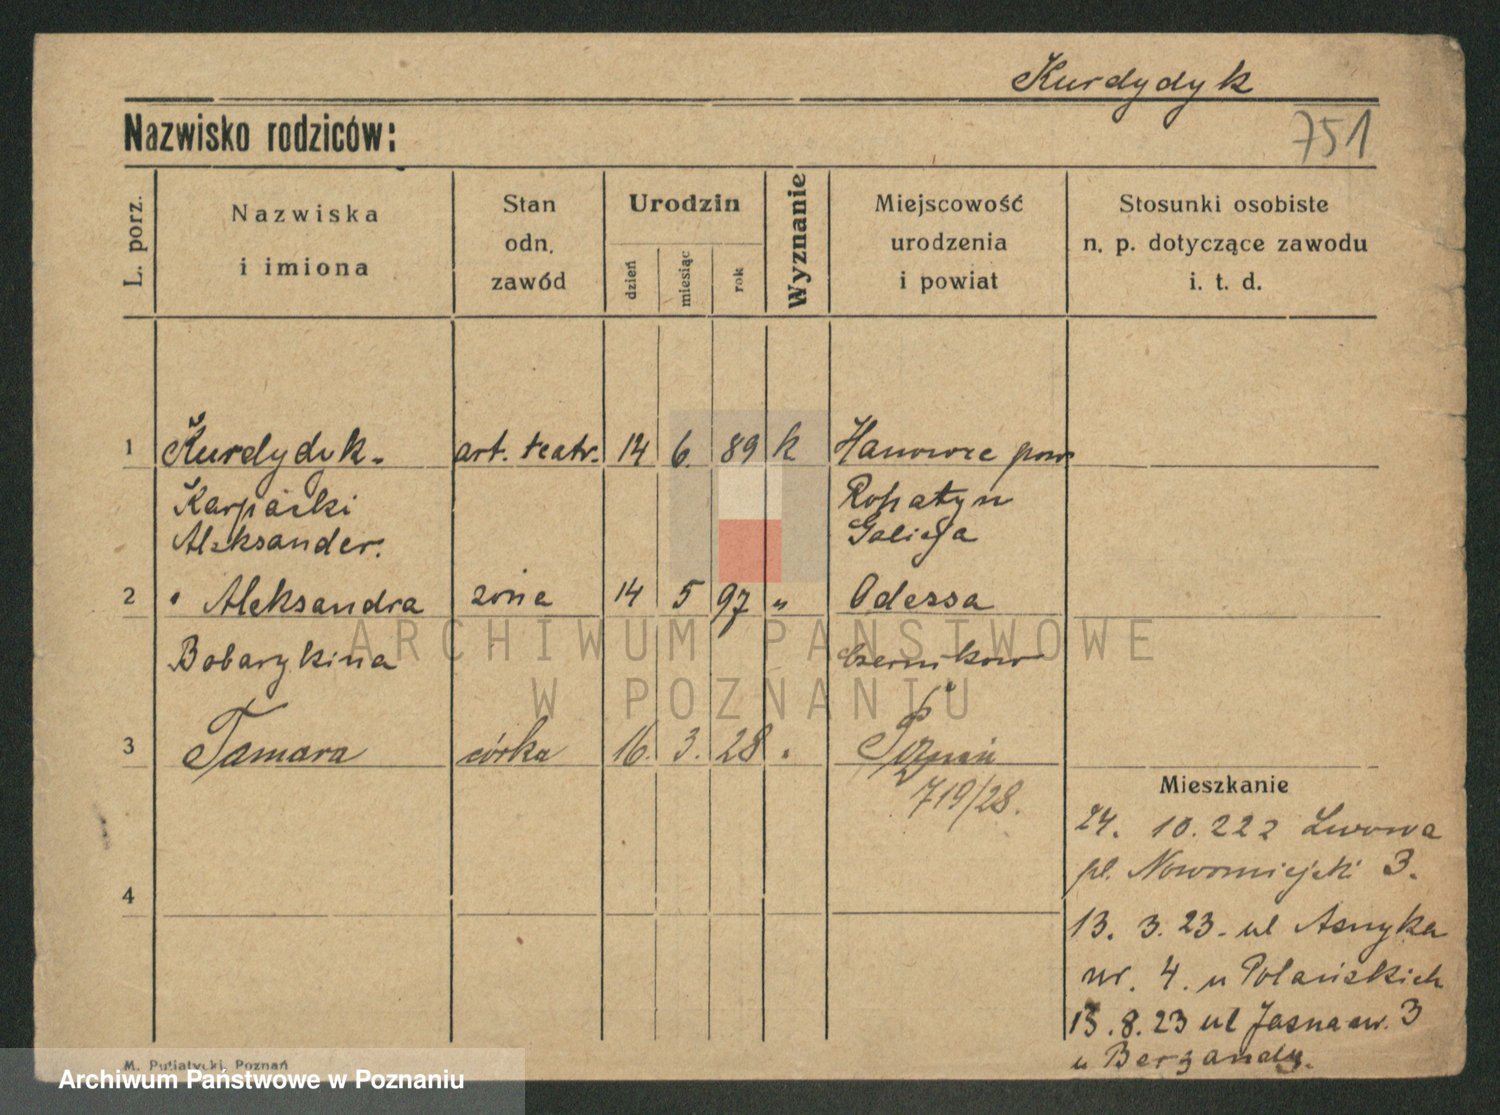 Kurdydyk
751
Nazwisko rodziców:
L. porz.
Nazwiska
i imiona
Stan
odn.
zawód
Urodzin
dzień
miesiąc
rok
Wyznanie
Miejscowość
urodzenia
i powiat
Stosunki osobiste
n. p. dotyczące zawodu
i. t. d.
1 Kurdydyk- art. teatr. 14 6. 89 k pow
Karpacki Rohatyn
Aleksander. Galicja
2 " Aleksandra żona 14 5 97 " Odessa
Bobarykina
3 Tamara córka 16. 3. 28 " Poznań
719/28.
Mieszkanie
24. 10. 222 Lwowa
pl. Nowomiejski 3.
4
13. 3. 23. ul Asnyka
nr. 4. u Polańskich
13. 8. 23 ul Jasna nr. 3
u
M. Putiatycki, Poznań
ARCHIWUM PAŃSTWOWE
W POZNANIU
Archiwum Państwowe w Poznaniu